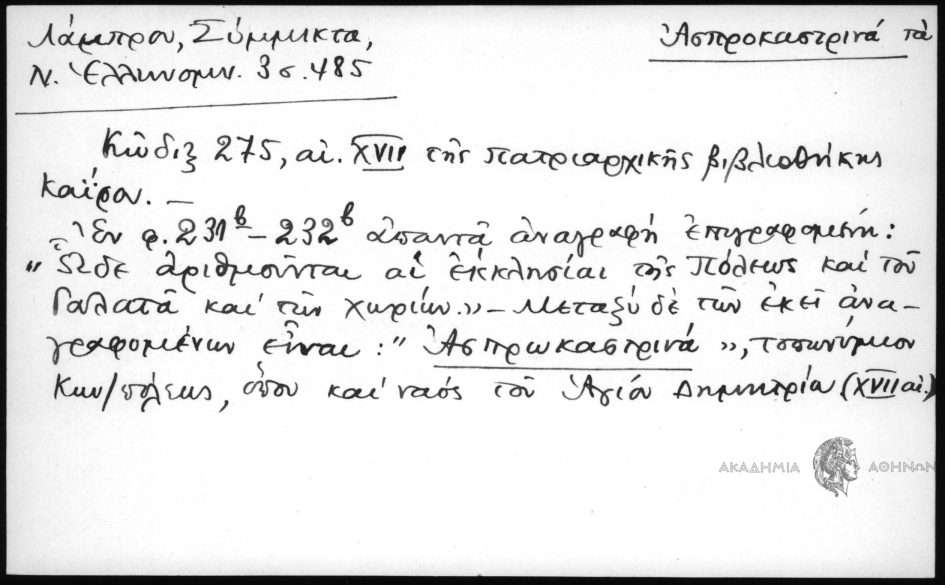 Λάμπρου, Σύμμικτα,
Ν. Ἑλληνομν. 3 σ. 485
Ἀσπροκαστρινά τὰ
Κῶδιξ 275, αἰ. XVII τῆς πατριαρχικῆς βιβλιοθήκης
Καΐρου. —
Ἐν φ. 231β – 232β ἀπαντᾷ ἀναγραφή ἐπιγραφομένη:
"Ὧδε ἀριθμοῦνται αἱ ἐκκλησίαι τῆς Πόλεως καὶ τοῦ
Γαλατᾶ καὶ τῶν χωρίων." – Μεταξὺ δὲ τῶν ἐκεῖ ἀνα-
γραφομένων εἶναι: "Ἀσπρωκαστρινά", τοπωνύμιον
Κων/πόλεως, ὅπου καὶ ναός τοῦ Ἁγίου Δημητρίου (XVII αἰ.)
ΑΚΑΔΗΜΙΑ ΑΘΗΝΩΝ